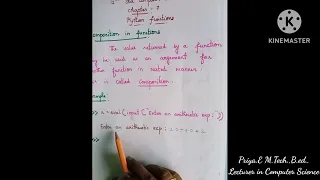 Chapter : 7
Python functions
Composition in functions
The value returned by a function
may be used as an argument for
function in nested manner.
is called composition.
Example:
>> n = eval(input("Enter an arithmetic exp:"))
Enter an arithmetic exp:
>>
KINEMASTER
Priya.E M.Tech.,B.ed.,
Lecturer in Computer Science